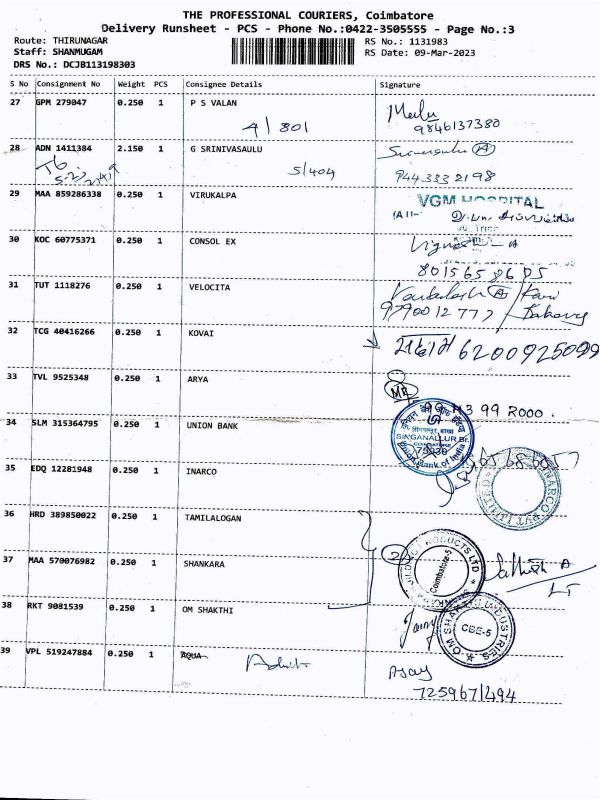 THE PROFESSIONAL COURIERS, Coimbatore
Delivery Runsheet - PCS - Phone No.:0422-3505555 - Page No.:3
Route: THIRUNAGAR RS No.: 1131983
Staff: SHANMUGAM RS Date: 09-Mar-2023
DRS No.: DCJB113198303
S No Consignment No Weight PCS Consignee Details Signature
27 GPM 279047 0.250 1 P S VALAN
4/801 9846137380
28 ADN 1411384 2.150 1 G SRINIVASAULU
5/404 9443332198
29 MAA 859286338 0.250 1 VIRUKALPA VGM HOSPITAL
30 KOC 60775371 0.250 1 CONSOL EX
8015658605
31 TUT 1118276 0.250 1 VELOCITA
9790012777
32 TCG 40416266 0.250 1 KOVAI
6200925099
33 TVL 9525348 0.250 1 ARYA
34 SLM 315364795 0.250 1 UNION BANK SINGANALLUR Br.
Union Bank of India
35 EDQ 12281948 0.250 1 INARCO
36 HRD 389850022 0.250 1 TAMILALOGAN
37 MAA 570076982 0.250 1 SHANKARA 2 Coimbatore-5
38 RKT 9081539 0.250 1 OM SHAKTHI
OM SHAKTHI INDUSTRIES CBE-5
39 VPL 519247884 0.250 1 AQUA
Ajay
7259671494